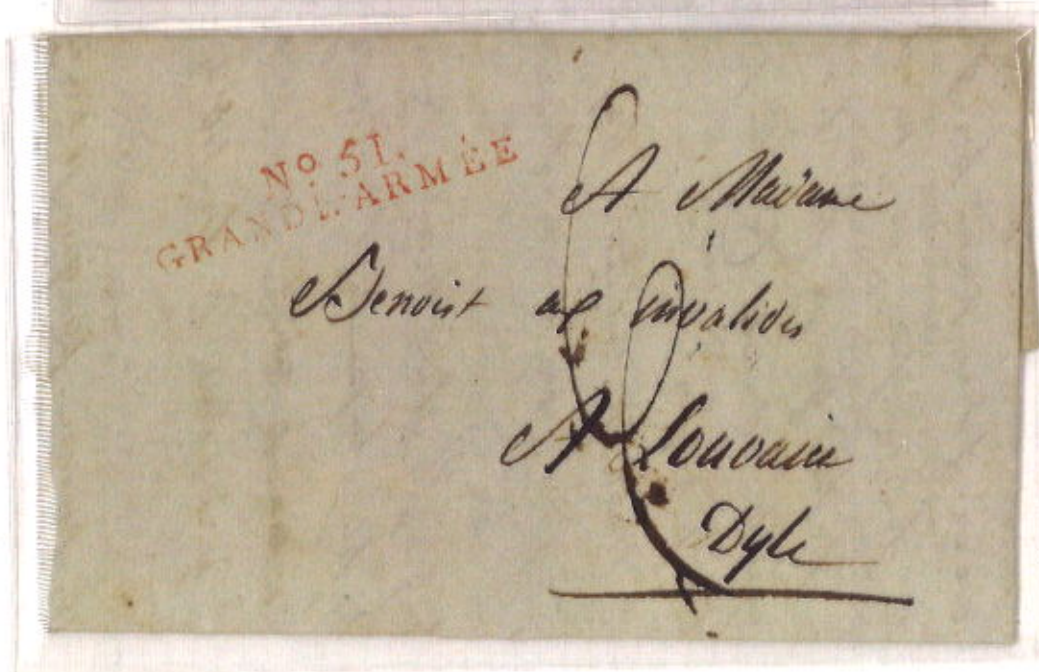 No 51.
GRANDE-ARMÉE
A Madame
Benoist aux invalides
A Louvain
Dyle